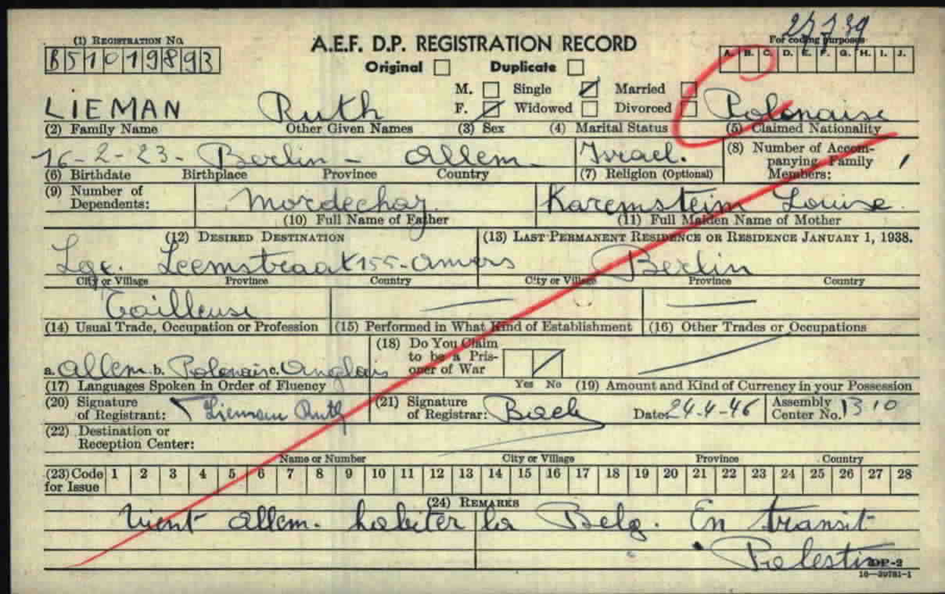 27739
(1) REGISTRATION NO. A.E.F. D.P. REGISTRATION RECORD For coding purposes
B51019893 Original Duplicate A. B. C. D. E. F. G. H. I. J.
M. Single Married
LIEMAN Ruth F. Widowed Divorced Polonaise
(2) Family Name Other Given Names (3) Sex (4) Marital Status (5) Claimed Nationality
16-2-23- Berlin - Allem. Israel. (8) Number of Accompanying Family Members:
(6) Birthdate Birthplace Province Country (7) Religion (Optional)
(9) Number of Dependents: Mordechaj Karemsteim Louise.
(10) Full Name of Father (11) Full Maiden Name of Mother
(12) DESIRED DESTINATION (13) LAST PERMANENT RESIDENCE OR RESIDENCE JANUARY 1, 1938.
Lge. Leemstraat 155-Anvers Berlin
City or Village Province Country City or Village Province Country
Tailleuse
(14) Usual Trade, Occupation or Profession (15) Performed in What Kind of Establishment (16) Other Trades or Occupations
a. Allem. b. Polonais c. Anglais (18) Do You Claim to be a Prisoner of War
(17) Languages Spoken in Order of Fluency Yes No (19) Amount and Kind of Currency in your Possession
(20) Signature of Registrant: Lieman Ruth (21) Signature of Registrar: Date: 24-4-46 Assembly Center No. 1310
(22) Destination or Reception Center:
Name or Number City or Village Province Country
(23) Code for Issue 1 2 3 4 5 6 7 8 9 10 11 12 13 14 15 16 17 18 19 20 21 22 23 24 25 26 27 28
(24) REMARKS
Vient Allem. habiter la Belg. En transit
Palestine DP-2
16-39781-1